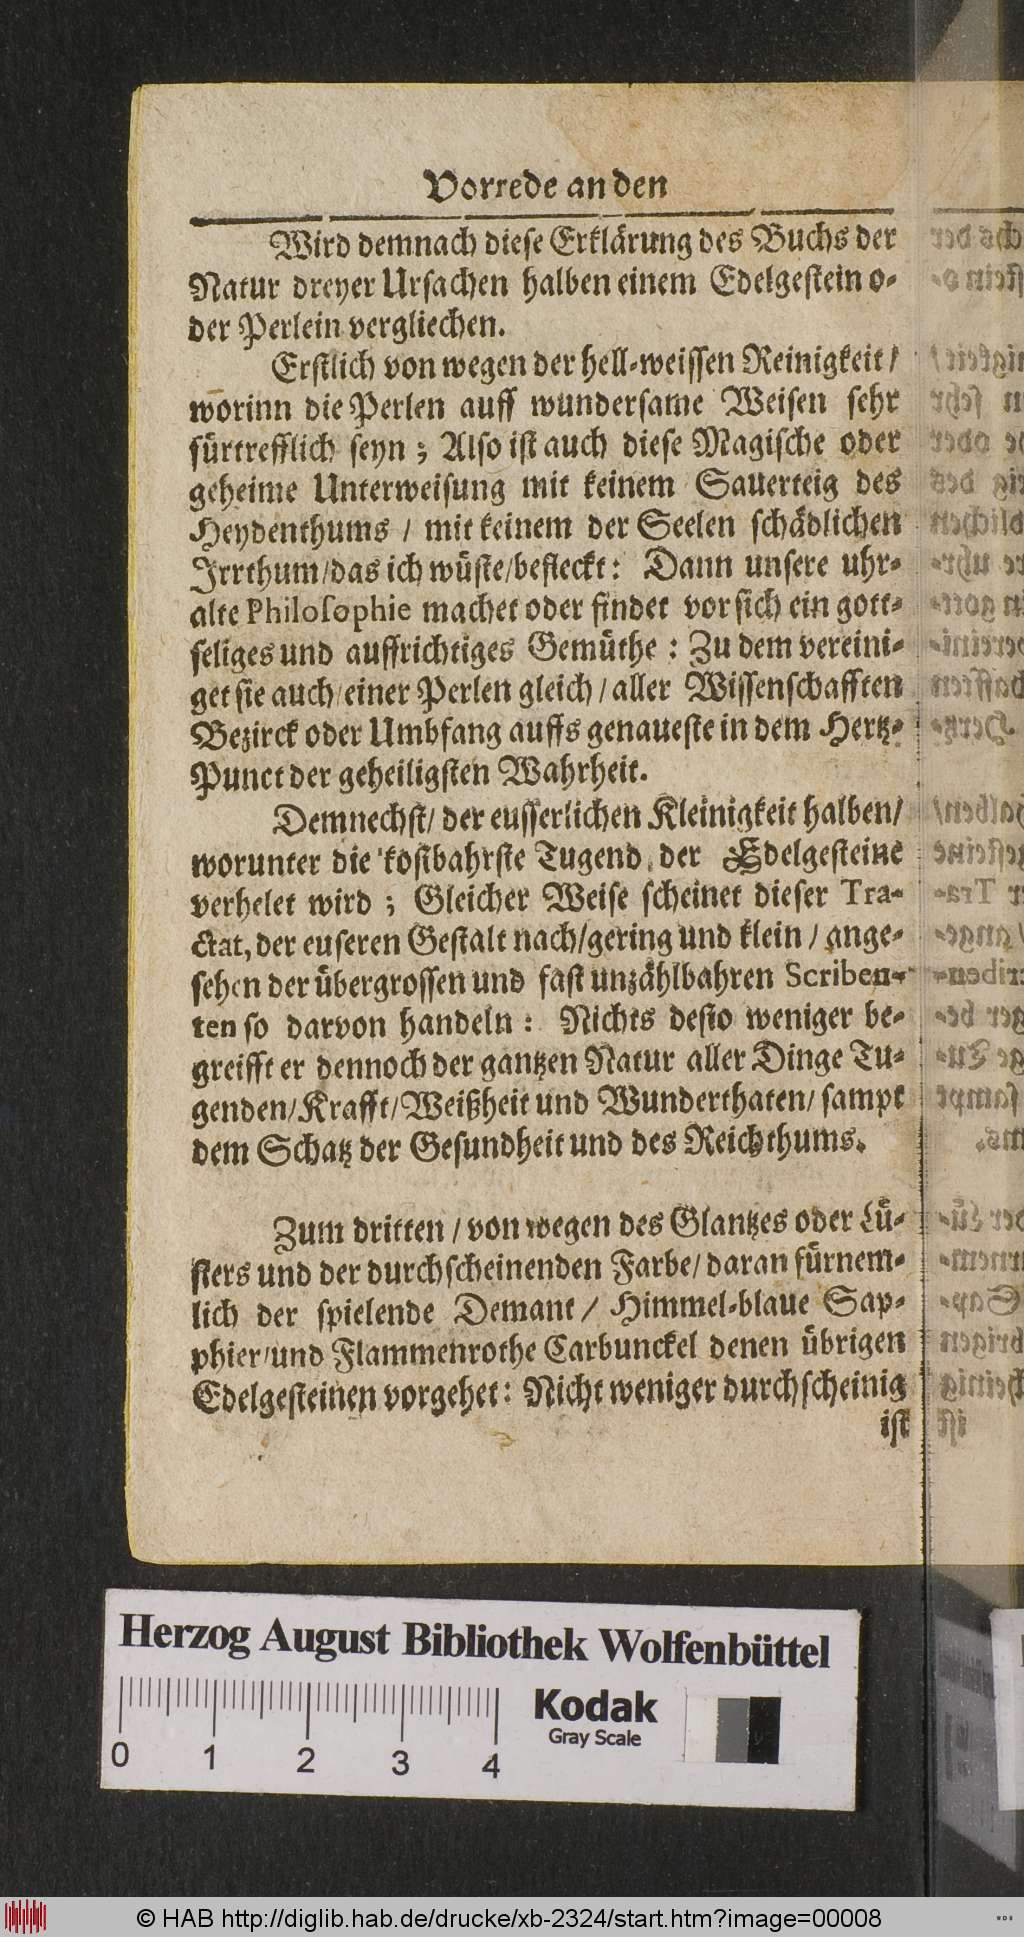 Vorrede an den
Wird demnach diese Erklärung des Buchs der
Natur dreyer Ursachen halben einem Edelgestein o-
der Perlein vergliechen.
Erstlich von wegen der hell-weissen Reinigkeit /
worinn die Perlen auff wundersame Weisen sehr
fürtrefflich seyn ; Also ist auch diese Magische oder
geheime Unterweisung mit keinem Sauerteig des
Heydenthums / mit keinem der Seelen schädlichen
Irrthum/das ich wüste/befleckt: Dann unsere uhr-
alte Philosophie machet oder findet vor sich ein gott-
seliges und auffrichtiges Gemüthe : Zu dem vereini-
get sie auch/einer Perlen gleich / aller Wissenschafften
Bezirck oder Umbfang auffs genaueste in dem Hertz-
Punct der geheiligsten Wahrheit.
Demnechst/ der eusserlichen Kleinigkeit halben/
worunter die kostbahrste Tugend der Edelgesteine
verhelet wird ; Gleicher Weise scheinet dieser Tra-
ctat, der euseren Gestalt nach/gering und klein / ange-
sehen der übergrossen und fast unzählbahren Scriben-
ten so darvon handeln : Nichts desto weniger be-
greifft er dennoch der gantzen Natur aller Dinge Tu-
genden/Krafft/Weißheit und Wunderthaten/ sampt
dem Schatz der Gesundheit und des Reichthums.
Zum dritten / von wegen des Glantzes oder Lü-
sters und der durchscheinenden Farbe/ daran fürnem-
lich der spielende Demant / Himmel-blaue Sap-
phier/und Flammenrothe Carbunckel denen übrigen
Edelgesteinen vorgehet: Nicht weniger durchscheinig
ist
Herzog August Bibliothek Wolfenbüttel
Kodak
Gray Scale
0 1 2 3 4
© HAB http://diglib.hab.de/drucke/xb-2324/start.htm?image=00008